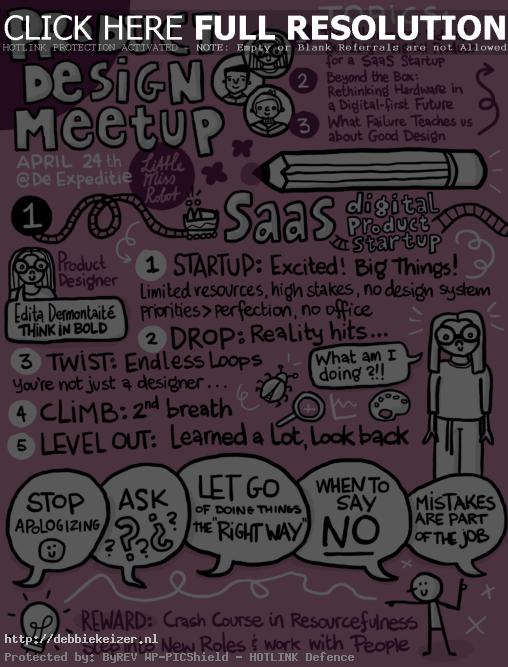 CLICK HERE FULL RESOLUTION
HOTLINK PROTECTION ACTIVATED - NOTE: Empty or Blank Referrals are not Allowed
DESIGN
MEETUP
APRIL 24th
@De Expeditie
Little
Miss
Robot
TOPICS:
for a SaaS Startup
2 Beyond the Box:
Rethinking Hardware in
a Digital-first Future
3 What Failure Teaches us
about Good Design
1
SaaS digital
product
startup
Product
Designer
Edita Dermontaité
THINK IN BOLD
1 STARTUP: Excited! Big Things!
Limited resources, high stakes, no design system
priorities > perfection, no office
2 DROP: Reality hits...
3 TWIST: Endless Loops
You're not just a designer...
What am I
doing ?!!
4 CLIMB: 2nd breath
5 LEVEL OUT: Learned a Lot, Look back
STOP
APOLOGIZING
ASK
????
LET GO
OF DOING THINGS
THE "RIGHT WAY"
WHEN TO
SAY
NO
MISTAKES
ARE PART
OF THE JOB
REWARD: Crash Course in Resourcefulness
Step into New Roles & work with People
http://debbiekeizer.nl
Protected by: ByREV WP-PICShield - HOTLINK Defence